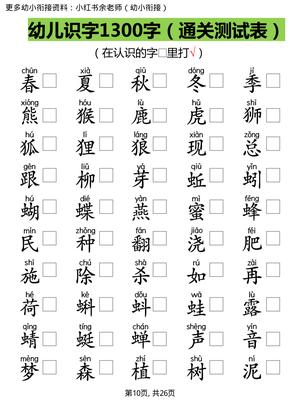 更多幼小衔接资料：小红书余老师（幼小衔接）
幼儿识字1300字（通关测试表）
（在认识的字□里打√）
chūn xià qiū dōng jì
春□ 夏□ 秋□ 冬□ 季□
xióng hóu lù hǔ shī
熊□ 猴□ 鹿□ 虎□ 狮□
hú lí láng xiàn gǔ
狐□ 狸□ 狼□ 现□ 谷□
gēn liǔ yá qiū yǐn
跟□ 柳□ 芽□ 蚯□ 蚓□
hú dié yàn mì fēng
蝴□ 蝶□ 燕□ 蜜□ 蜂□
mín zhǒng fān jiāo féi
民□ 种□ 翻□ 浇□ 肥□
shī chú shā rú zài
施□ 除□ 杀□ 如□ 再□
hé kē dǒu wā lù
荷□ 蝌□ 蚪□ 蛙□ 露□
qīng tíng chán shēng yīn
蜻□ 蜓□ 蝉□ 声□ 音□
mèng sēn zhí shù ní
梦□ 森□ 植□ 树□ 泥□
第10页, 共26页